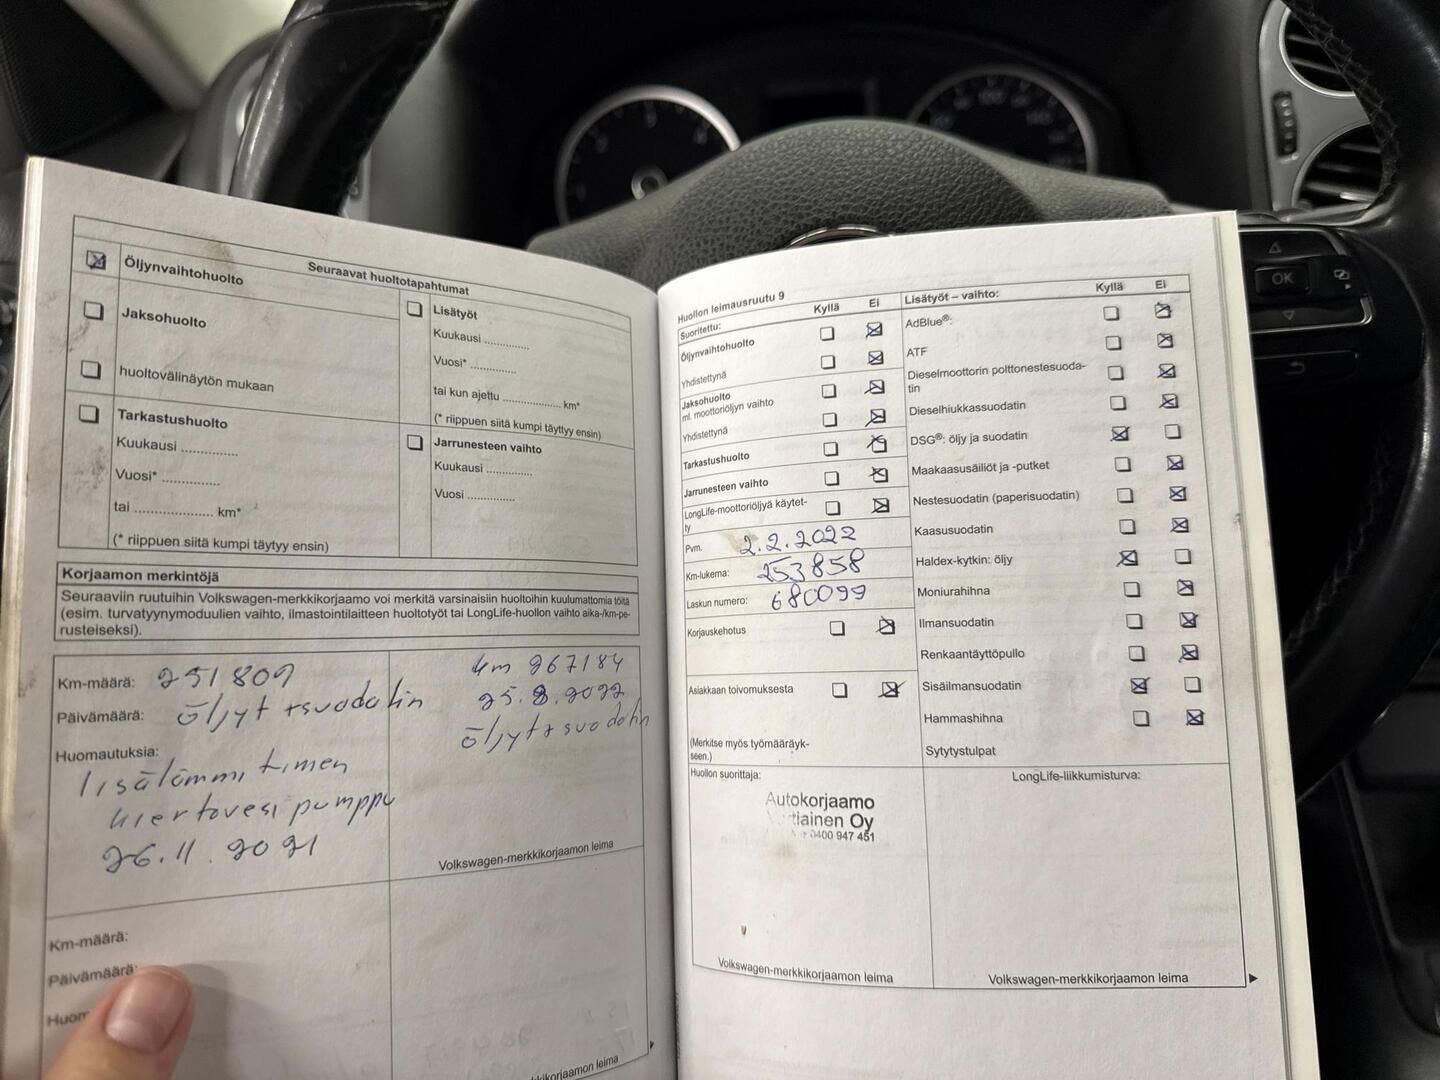 Seuraavat huoltotapahtumat
Öljynvaihtohuolto
Jaksohuolto
huoltovälinäytön mukaan
Tarkastushuolto
Kuukausi ..............
Vuosi* ..............
tai ................... km*
(* riippuen siitä kumpi täytyy ensin)
Lisätyöt
Kuukausi ..............
Vuosi* ..............
tai kun ajettu .................. km*
(* riippuen siitä kumpi täyttyy ensin)
Jarrunesteen vaihto
Kuukausi ..............
Vuosi ..............
Korjaamon merkintöjä
Seuraaviin ruutuihin Volkswagen-merkkikorjaamo voi merkitä varsinaisiin huoltoihin kuulumattomia töitä
(esim. turvatyynymoduulien vaihto, ilmastointilaitteen huoltotyöt tai LongLife-huollon vaihto aika-/km-pe-
rusteiseksi).
Km-määrä: 251809
Päivämäärä: öljyt + suodatin
Huomautuksia:
lisälämmittimen
kiertovesi pumppu
26.11.2021
km 267184
25.8.2022
öljyt + suodatin
Volkswagen-merkkikorjaamon leima
Km-määrä:
Päivämäärä:
Huom
Huollon leimausruutu 9
Suoritettu: Kyllä Ei
Öljynvaihtohuolto
Yhdistettynä
Jaksohuolto
ml. moottoriöljyn vaihto
Yhdistettynä
Tarkastushuolto
Jarrunesteen vaihto
LongLife-moottoriöljyä käytet-
ty
Pvm. 2.2.2022
Km-lukema: 253858
Laskun numero: 680099
Korjauskehotus
Asiakkaan toivomuksesta
(Merkitse myös työmääräyk-
seen.)
Huollon suorittaja:
Autokorjaamo
tiainen Oy
0400 947 451
Volkswagen-merkkikorjaamon leima
Lisätyöt – vaihto: Kyllä Ei
AdBlue®:
ATF
Dieselmoottorin polttonestesuoda-
tin
Dieselhiukkassuodatin
DSG®: öljy ja suodatin
Maakaasusäiliöt ja -putket
Nestesuodatin (paperisuodatin)
Kaasusuodatin
Haldex-kytkin: öljy
Moniurahihna
Ilmansuodatin
Renkaantäyttöpullo
Sisäilmansuodatin
Hammashihna
Sytytystulpat
LongLife-liikkumisturva:
Volkswagen-merkkikorjaamon leima
OK